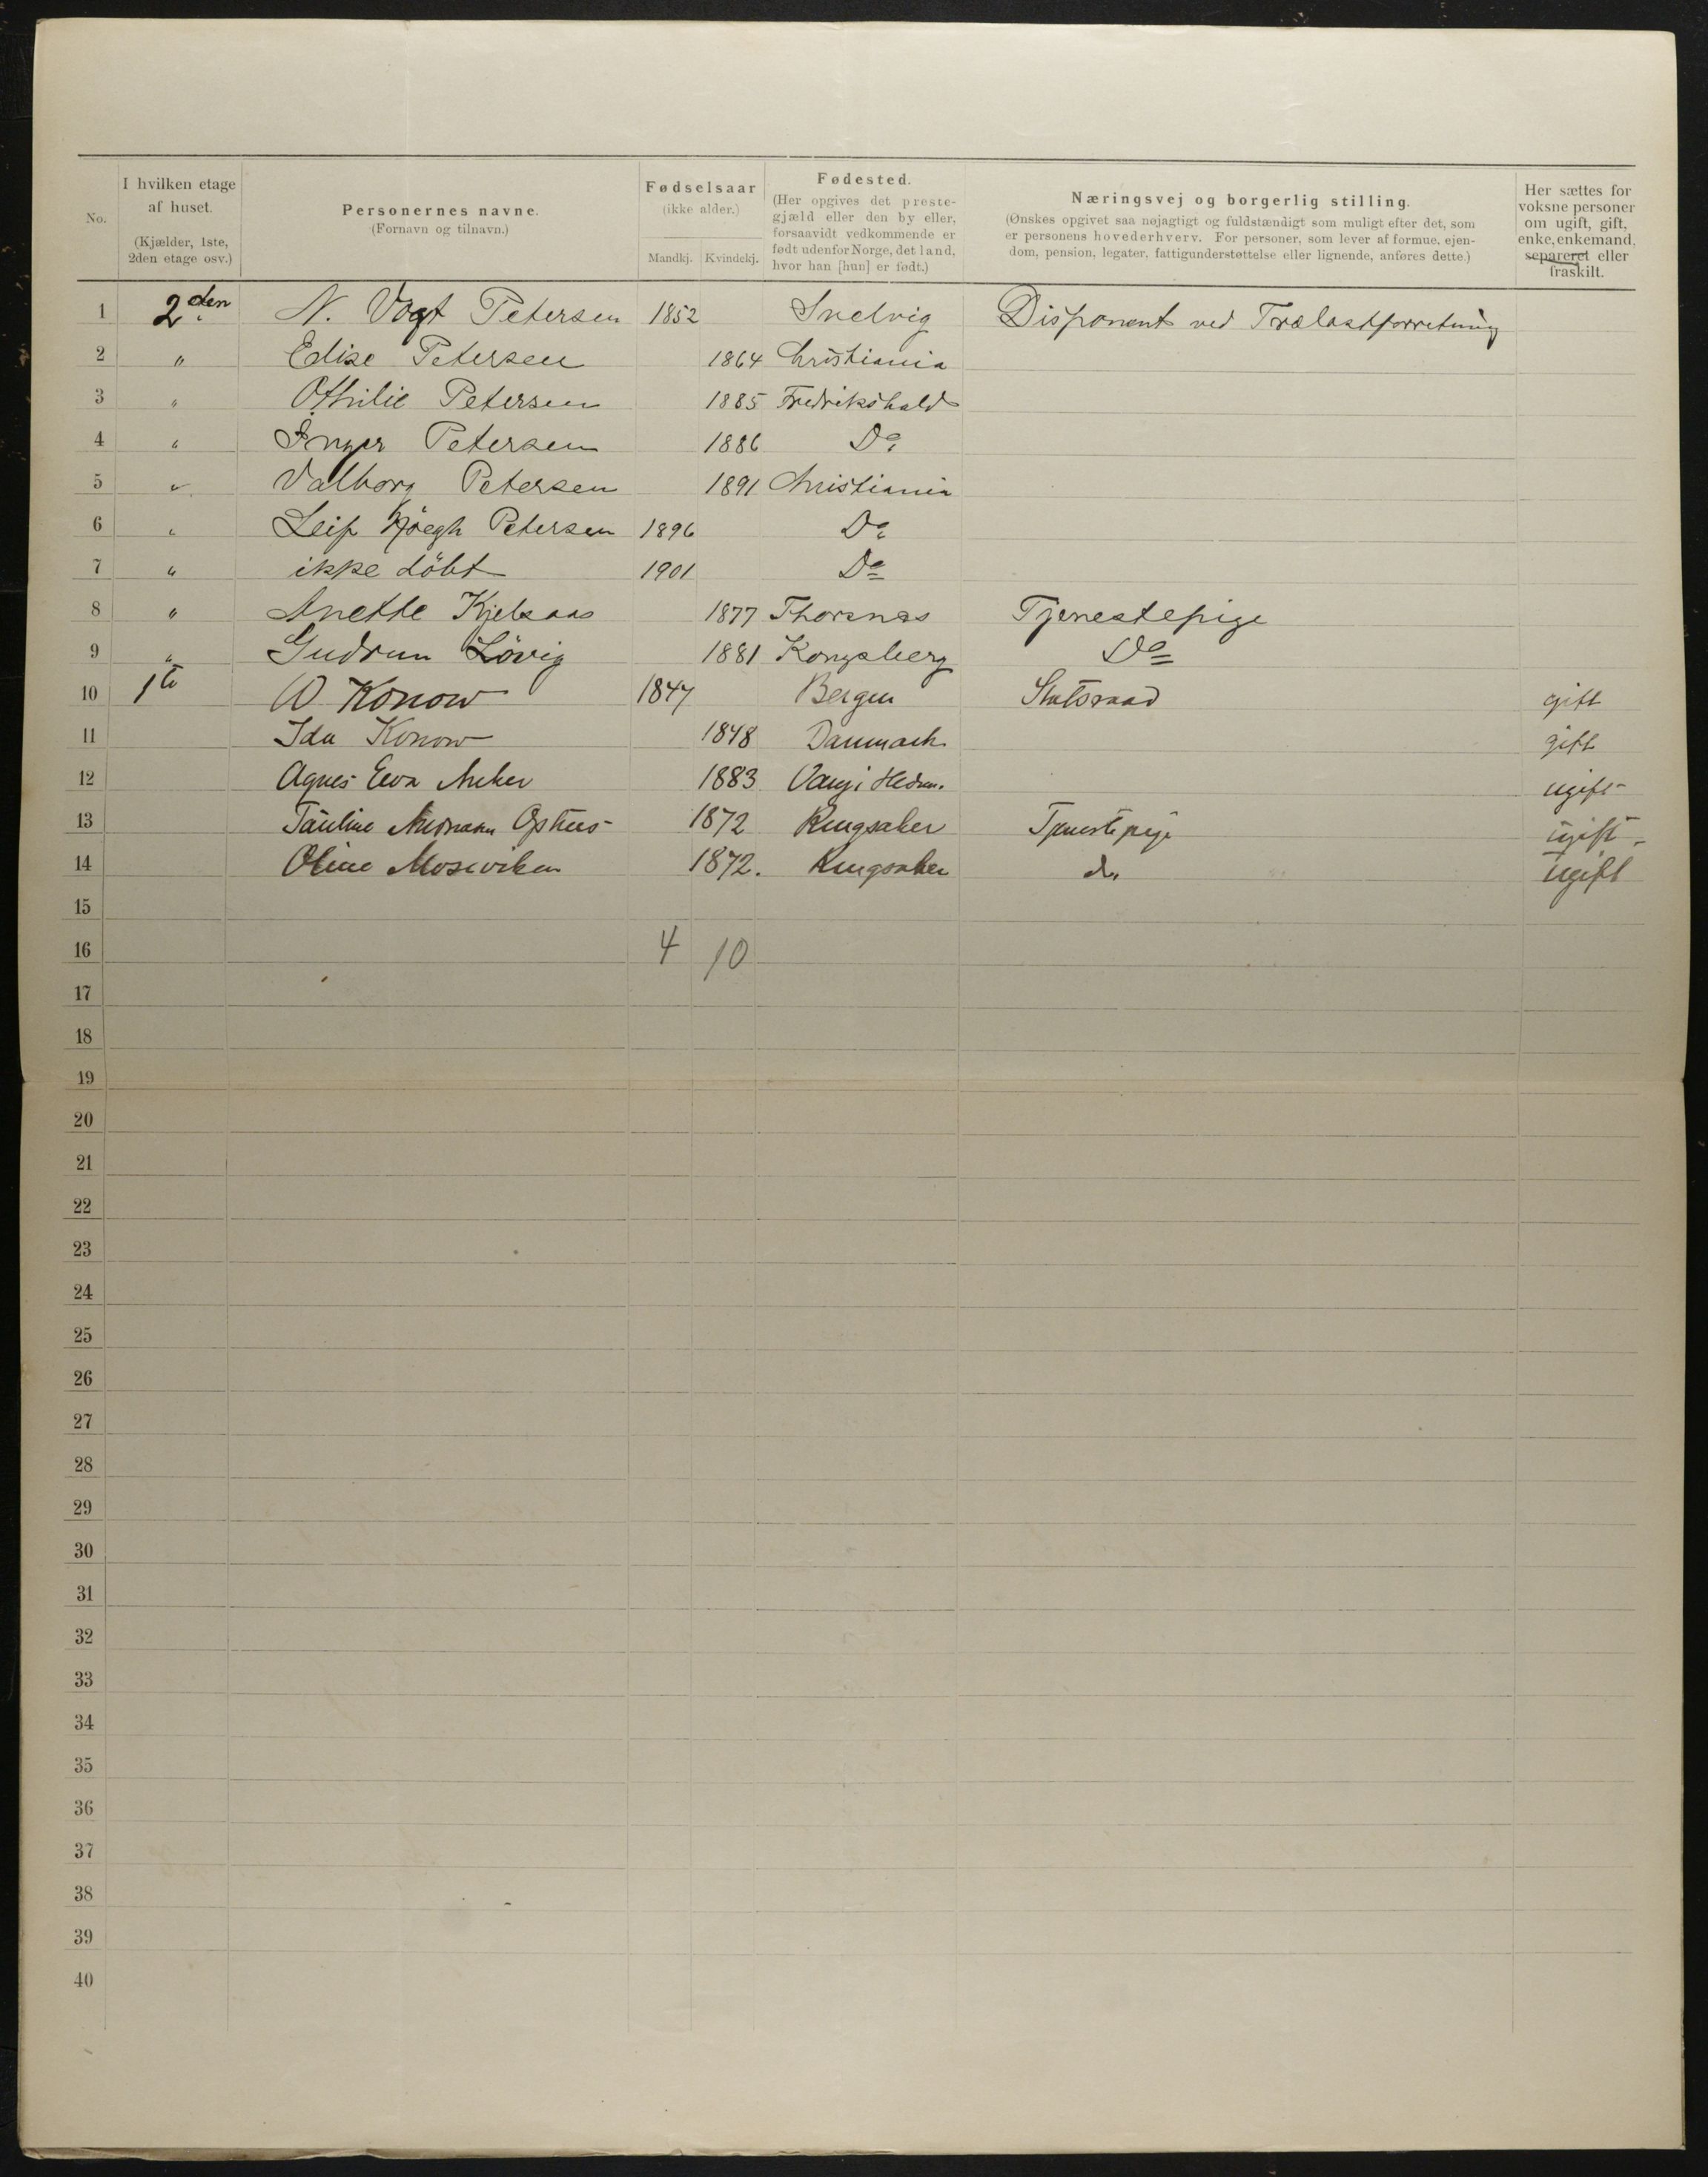 No.
I hvilken etage af huset.
(Kjælder, 1ste, 2den etage osv.)
Personernes navne.
(Fornavn og tilnavn.)
Fødselsaar
(ikke alder.)
Mandkj. Kvindekj.
Fødested.
(Her opgives det preste-
gjæld eller den by eller,
forsaavidt vedkommende er
født udenfor Norge, det land,
hvor han [hun] er født.)
Næringsvej og borgerlig stilling.
(Ønskes opgivet saa nøjagtigt og fuldstændigt som muligt efter det, som
er personens hovederhverv. For personer, som lever af formue, ejen-
dom, pension, legater, fattigunderstøttelse eller lignende, anføres dette.)
Her sættes for
voksne personer
om ugift, gift,
enke, enkemand,
separeret eller
fraskilt.
1 2den N. Vogt Petersen 1852 Svelvig Disponent ved Trælastforretning
2 " Edise Petersen 1864 Christiania
3 " Othilie Petersen 1885 Fredrikshald
4 " Inger Petersen 1886 Do
5 " Valborg Petersen 1891 Christiania
6 " Leif Høegh Petersen 1896 Do
7 " ikke döbt 1901 Do
8 " Anette Kjelsaas 1877 Thorsnæs Tjenestepige
9 " Gudrun Lövig 1881 Kongsberg Do
10 1te W Konow 1847 Bergen Statsraad gift
11 Ida Konow 1848 Danmark gift
12 Agnes Ewa Anker 1883 Vang i Hedm. ugift
13 Pauline Ophus 1872 Ringsaker Tjenestepige ugift
14 Oline Moseviken 1872. Ringsaker do ugift
15
16 4 10
17
18
19
20
21
22
23
24
25
26
27
28
29
30
31
32
33
34
35
36
37
38
39
40